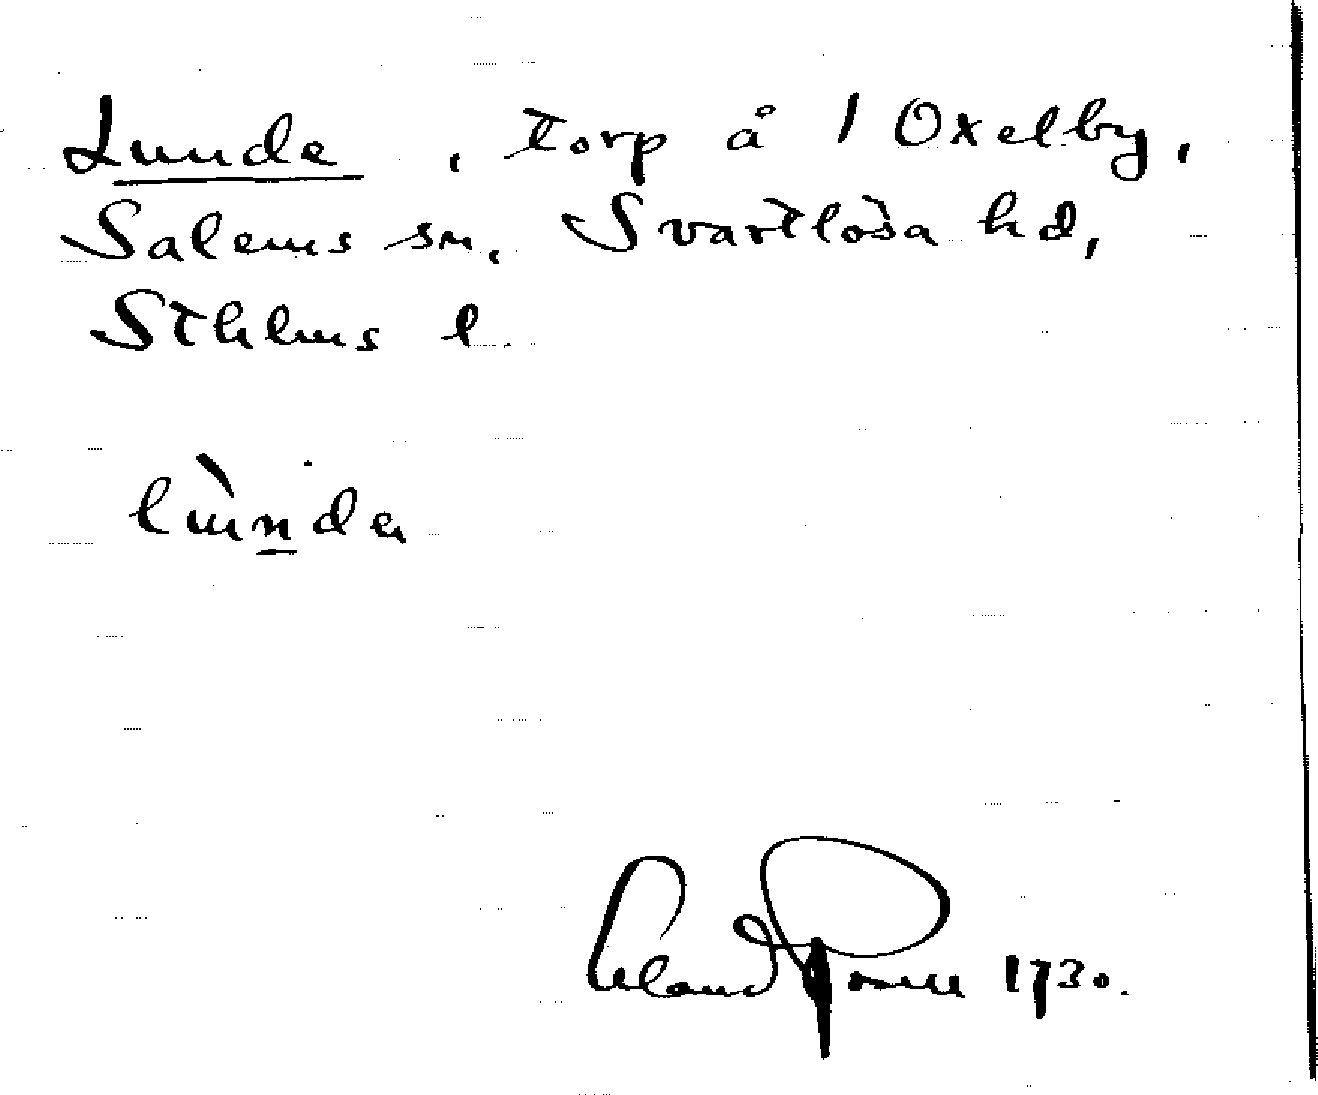 Lunda, torp å 1 Oxelby,
Salems sn, Svartlösa hd,
Sthlms l.
lùnda
Erland Rosell 1930.